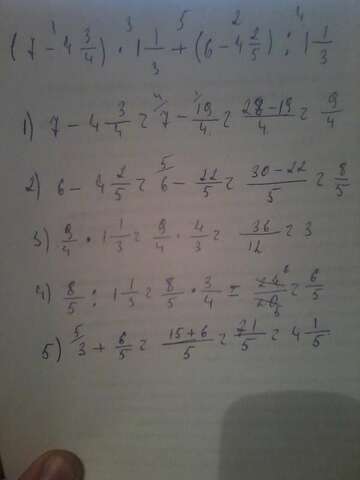 1 3 5 2 4
(7 - 4 3/4) · 1 1/3 + (6 - 4 2/5) : 1 1/3
1) 7 - 4 3/4 = 7 - 19/4 = 28-19/4 = 9/4
2) 6 - 4 2/5 = 6 - 22/5 = 30-22/5 = 8/5
3) 9/4 · 1 1/3 = 9/4 · 4/3 = 36/12 = 3
4) 8/5 : 1 1/3 = 8/5 · 3/4 = 24/20 = 6/5
5) 3 + 6/5 = 15+6/5 = 21/5 = 4 1/5